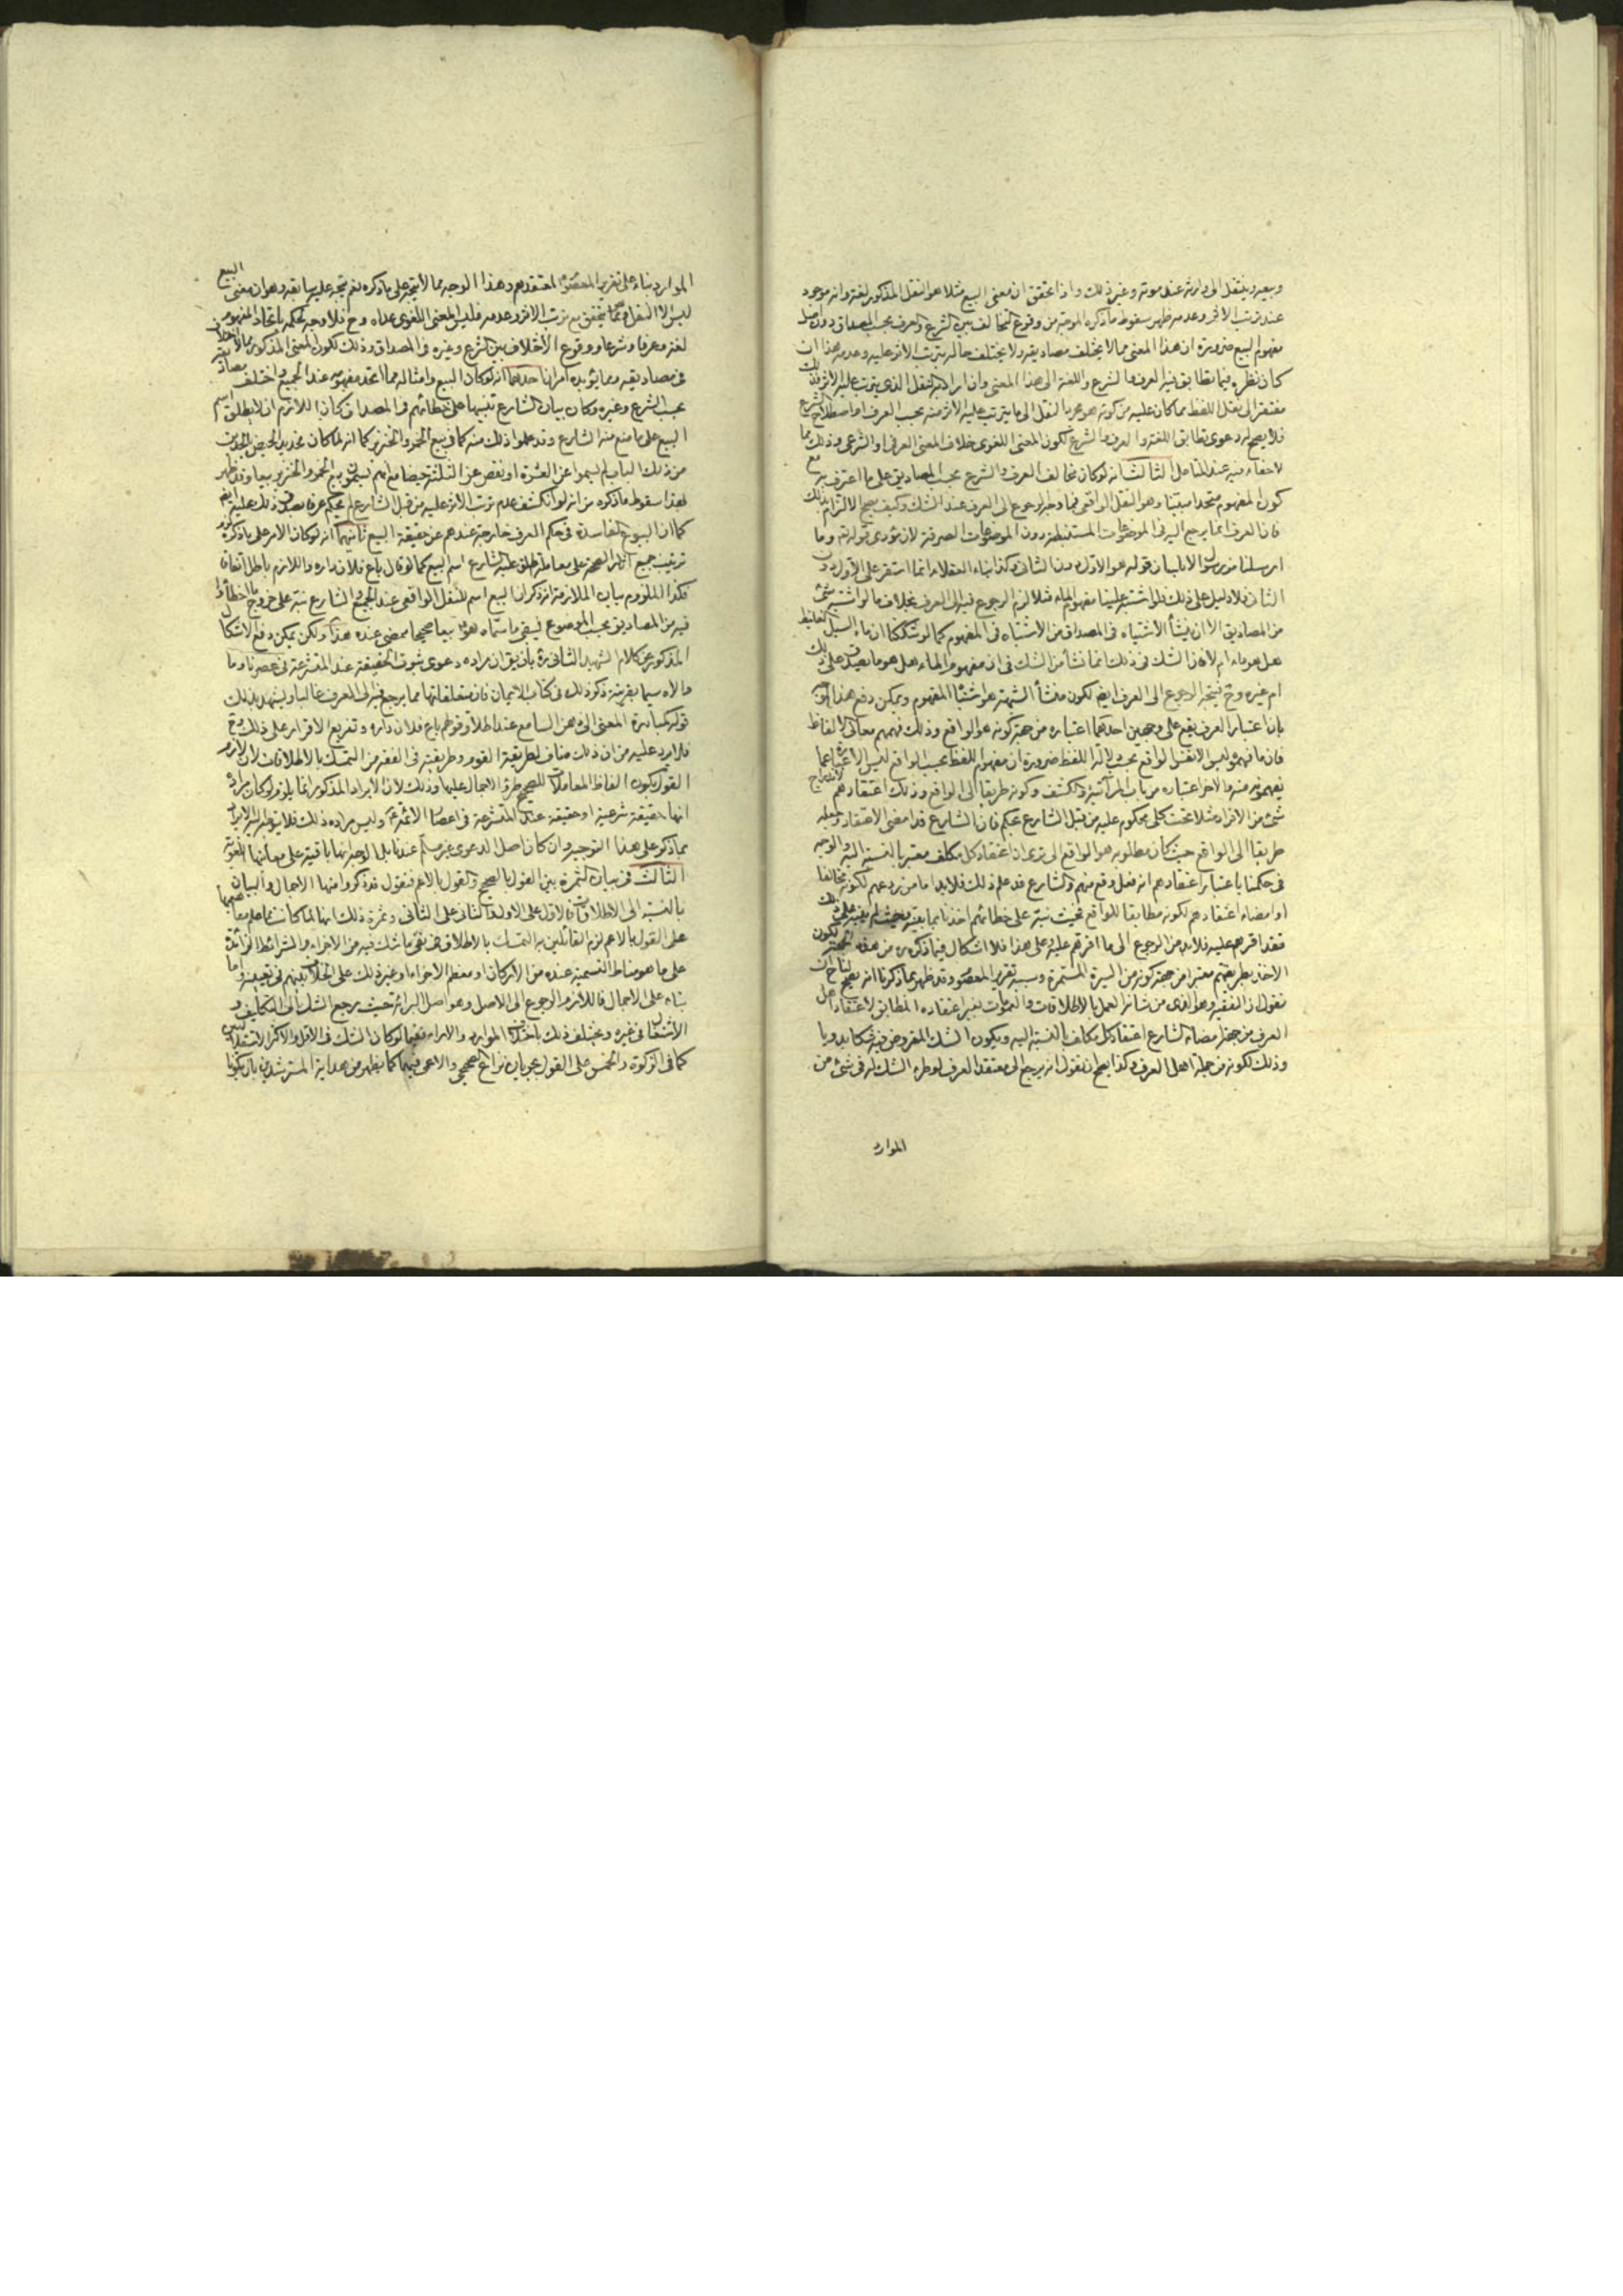 وبيعه وينتقل الى وارثه عند موته وغير ذلك واذا تحقق ان معنى البيع مثلا هو النقل المذكور لغة وانه موجود
عند ترتب الاثر وعدمه ظهر سقوط ما ذكره الموجه من وقوع التخالف بين الشرع والعرف بحسب المصداق دون اصل
مفهوم البيع ضرورة ان هذا المعنى مما لا يختلف مصاديقه ولا يختلف حاله بترتب الاثر عليه وعدمه هذا ان
كان نظره فيما تطابق فيه العرف والشرع واللغة الى هذا المعنى وان اراد به النقل الذي يترتب عليه الاثر
مفتقرا الى نقل اللفظ مما كان عليه من كونه هو مجرد النقل الى ما يترتب عليه الاثر منه بحسب العرف او اصطلاح الشرع
فلا يصح له دعوى تطابق اللغة والعرف والشرع لكون المعنى اللغوى خلاف المعنى العرفى او الشرعى وذلك مما
لا خفاء فيه عند المتامل الثالث انه لو كان تخالف العرف والشرع بحسب المصاديق على ما اعترف به مع
كون المفهوم متحدا مبينا وهو النقل الواقعى فما وجه الرجوع الى العرف عند الشك وكيف يصح الالتزام بذلك
فان العرف انما يرجع اليه فى الموضوعات المستنبطة دون الموضوعات الصرفة لان مؤدى قوله تع وما
ارسلنا من رسول الا بلسان قومه هو الاول دون الثانى وكذا بناء العقلاء انما استقر على الاول دون
الثانى فلا دليل على ذلك فلو اشتبه علينا مفهوم الماء مثلا لزم الرجوع فيه الى العرف بخلاف ما لو اشتبه شئ
من المصاديق الا ان ينشأ الاشتباه فى المصداق من الاشتباه فى المفهوم كما لو شككنا ان ماء السيل الغليظ
هل هو ماء ام لا فان الشك فى ذلك انما نشأ من الشك فى ان مفهوم الماء هل هو ما يصدق على ذلك
ام غيره وح يتجه الرجوع الى العرف ايضا لكون منشأ الشبهة هو اشتباه المفهوم ويمكن دفع هذا
بان اعتبار العرف يقع على وجهين احدهما اعتباره من جهة كونه هو الواقع وذلك فهمهم معانى الالفاظ
فان ما فهموه ليس الا نفس الواقع بحسب دلالة اللفظ ضرورة ان مفهوم اللفظ بحسب الواقع ليس الا عبارة عما
يفهمونه منه والاخر اعتباره من باب المرآتية والكشف وكونه طريقا الى الواقع وذلك اعتقادهم لاندراج
شئ من الافراد مثلا تحت كلى محكوم عليه من قبل الشارع بحكم فان الشارع قد امضى الاعتقاد وجعله
طريقا الى الواقع حيث كان مطلوبه هو الواقع الى ترى ان اعتقاد كل مكلف معتبر بالنسبة اليه والوجه
فى حكمنا باعتبار اعتقادهم انه فعل وقع منهم والشارع قد علم ذلك فلا بد اما من ردعهم لكونه مخالفا
او امضاء اعتقادهم لكونه مطابقا للواقع فحيث نبه على خطائهم اخذنا بما بينه وحيث لم ينبه على ذلك
فقد اقرهم عليه فلا بد من الرجوع الى ما اقرهم عليه وعلى هذا فلا اشكال فيما ذكره من هذه الجهة لكون
الاخذ بطريقتهم معتبرا من جهة كونه من السيرة المستمرة وسببه تقرير المعصوم وقد ظهر بما ذكرنا انه يصح لنا ح ان
نقول ان الفقيه وهو الذى من شانه العمل بالاطلاقات والعمومات يعتبر اعتقاده المطابق لاعتقاد اهل
العرف من جهة امضاء الشارع اعتقاد كل مكلف بالنسبة اليه ويكون الشك المفروض فيه شكا بدويا
وذلك لكونه من جملة اهل العرف وكذا يصح ان نقول انه يرجع الى معتقد العرف لو طرء الشك له فى شئ من
الموارد
الموارد بناء على تقرير المعصوم لمعتقدهم وهذا الوجه مما لا يتجه على ما ذكره نعم يتجه على سابقه وهو ان معنى البيع
ليس الا النقل وهما يتحقق مع ترتب الاثر وعدمه فليس المعنى اللغوى عداه وح فلا وجه لحكمه باتحاد المفهوم
لغة وعرفا وشرعا ووقوع الاختلاف بين الشرع وغيره فى المصداق وذلك لكون المعنى المذكور مما لا اختلاف
فى مصاديقه ومما يؤيده امران احدهما انه لو كان البيع وامثاله مما اتحد مفهومه عند الجميع واختلف مصاديقه
بحسب الشرع وغيره وكان بيان الشارع تنبيها على خطائهم فى المصداق كان اللازم ان لا يطلق اسم
البيع على ما منع منه الشارع وقد علموا ذلك منه كما فى بيع الخمر والخنزير كما انه لما كان تحديد الحيض
من ذلك الباب لم يسموا ما زاد عن العشرة او نقص عن الثلثة حيضا مع انهم يسمون بيع الخمر والخنزير بيعا وقد ظهر
بهذا سقوط ما ذكره من انه لو انكشف عدم ترتب الاثر عليه من قبل الشارع لم يحكم عرفا بصدق ذلك عليه ايضا
كما ان البيوع الفاسدة فى حكم العرف خارجة عندهم عن حقيقة البيع ثانيهما انه لو كان الامر على ما ذكره لزم
ترتيب جميع اثار الصحة على معاملة اطلق عليه الشارع اسم البيع كما لو قال باع فلان داره واللازم باطل اتفاقا
فكذا الملزوم بيان الملازمة انه ذكر ان البيع اسم للنقل الواقعى عند الجميع والشارع نبه على خروج ما اخطأوا
فيه من المصاديق بحسب الموضوع فيبقى ما سماه هو بيعا صحيحا ممضى عنده هذا ولكن يمكن دفع الاشكال
المذكور عن كلام الشهيد الثانى ره بأن يق ان مراده دعوى ثبوت الحقيقة عند المتشرعة فى عصرنا وما
والاه سيما بقرينة ذكر ذلك فى كتاب الايمان فان متعلقاتها مما يرجع فيه الى العرف غالبا ويشهد بذلك
قوله كمبادرة المعنى الى ذهن السامع عند اطلاق قولهم باع فلان داره وتفريع الاقرار على ذلك وح
فلا يرد عليه من ان ذلك مناف لطريقة القوم وطريقته فى الفقه من التمسك بالاطلاقات لان لازم
القول بكون الفاظ المعاملات للصحيح طرو الاجمال عليها وذلك لان الايراد المذكور انما يلزم لو كان مراده
انها حقيقة شرعية او حقيقة عند المتشرعة فى اعصار الائمة ع وليس مراده ذلك فلا يتوجه اليه الايراد
بما ذكر على هذا التوجيه وان كان اصل الدعوى غير مسلم عندنا بل الوجه انها باقية على معانيها اللغوية
الثالث فى بيان الثمرة بين القول بالصحيح والقول بالاعم فنقول قد ذكروا منها الاجمال والبيان
بالنسبة الى الاطلاقات فالاول على الاول والثانى على الثانى وثمرة ذلك انها لما كانت
على القول بالاعم لزم القائلين به التمسك بالاطلاق فى نفى ما شك فيه من الاجزاء والشرائط الزائدة
على ما هو مناط التسمية عنده من الاركان او معظم الاجزاء او غير ذلك على الخلاف بينهم فى تعيينه واما
بناء على الاجمال فاللازم الرجوع الى الاصل وهو اصل البرائة حيث يرجع الشك الى التكليف و
الاشتغال فى غيره ويختلف ذلك باختلاف الموارد والاراء ففيما لو كان الشك فى الاقل والاكثر
كما فى الزكوة والخمس على القول بجريان نزاع الصحيحى والاعمى فيهما كما يظهر من هداية المسترشدين